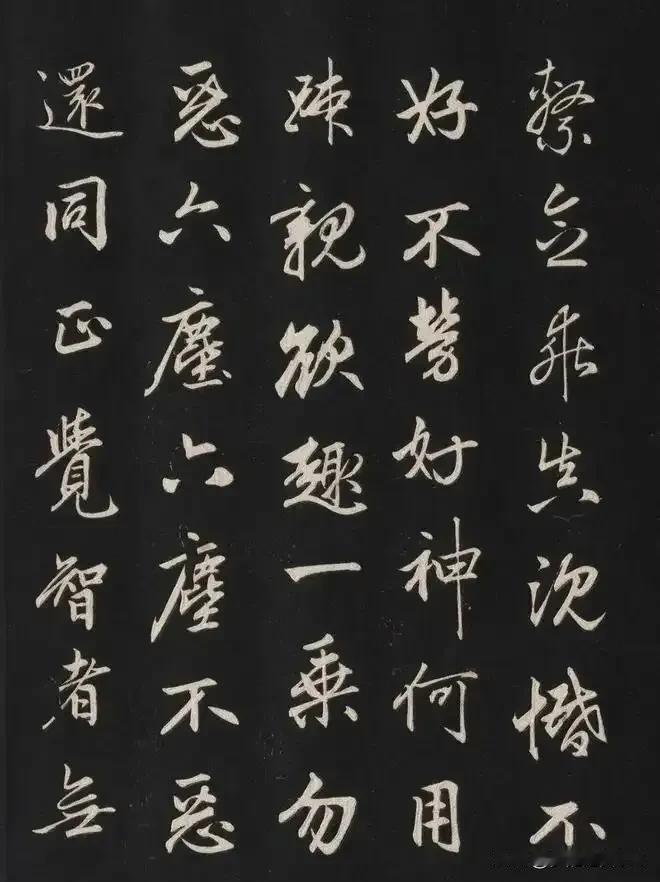 繫念乖真沉惛不
好不勞好神何用
疎親欲趣一乘勿
惡六塵六塵不惡
還同正覺智者無